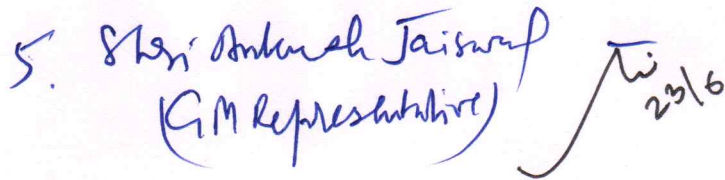 5. Shri Ankush Jaiswal
(GM Representative)
23/6